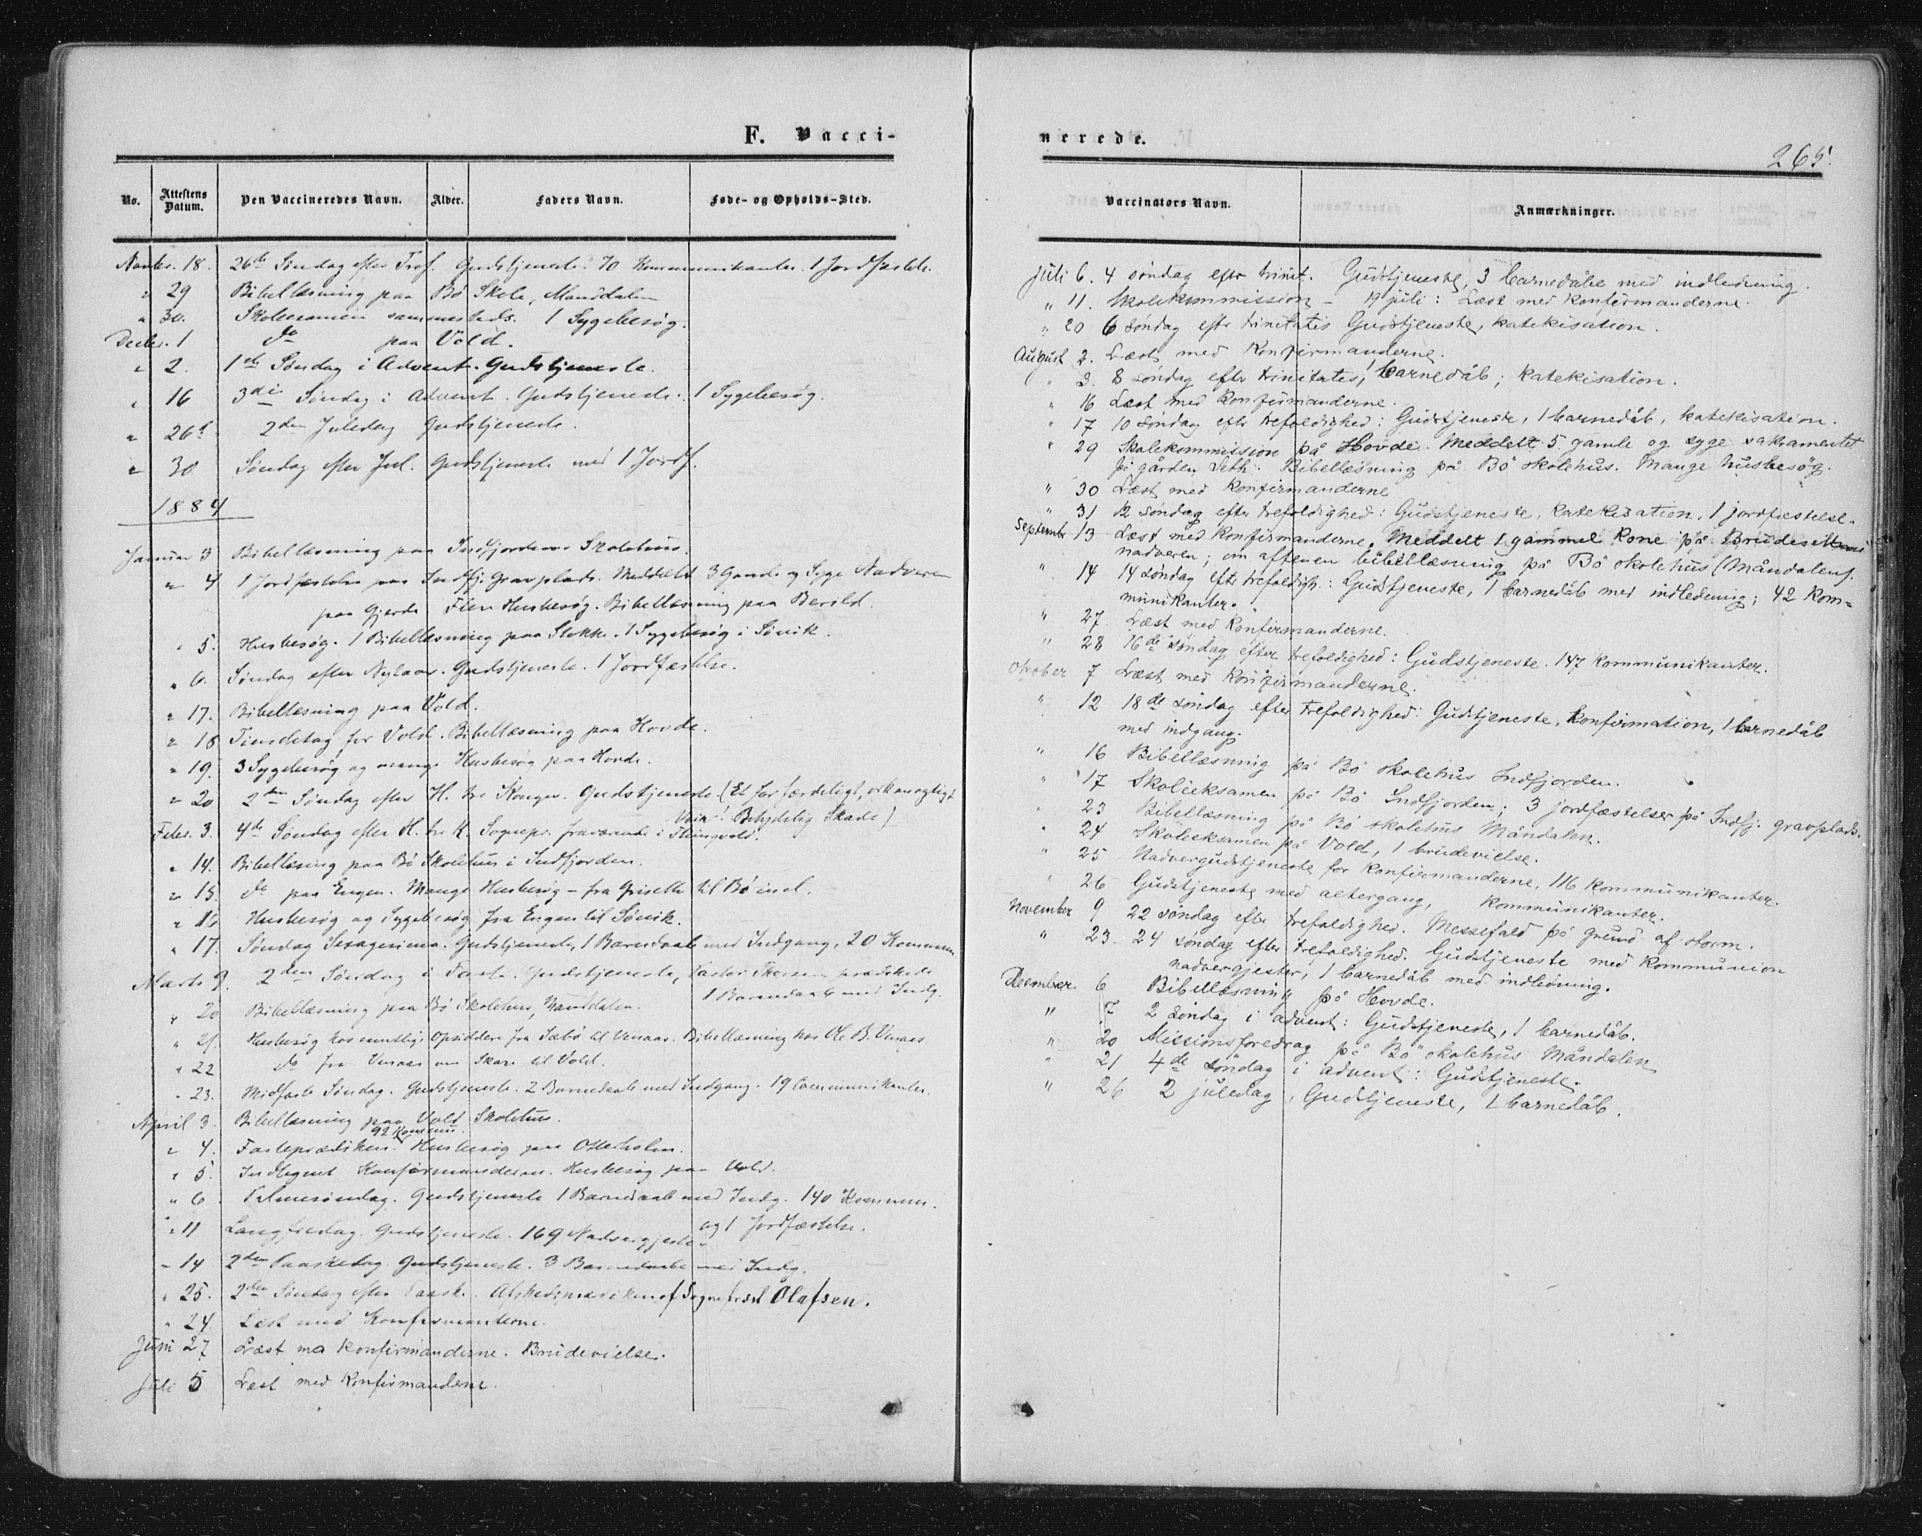 F. Vacci-
No.
Attestens Datum.
Den Vaccineredes Navn.
Alder.
Faders Navn.
Føde- og Opholds-Sted.
Novbr. 18. 26de Søndag efter Tref. Gudstjeneste. 70 Kommunikanter. 1 Jordfæstelse.
" 29 Bibellæsning paa Bø Skole, Manddalen
" 30. Skoleexamen sammesteds. 1 Sygebesøg.
Decbr. 1 do paa Vold.
" 2. 1ste Søndag i Advent. Gudstjeneste.
" 16 3die Søndag i Advent. Gudstjeneste. 1 Sygebesøg.
" 26 2den Juledag Gudstjeneste.
" 30 Søndag efter Jul. Gudstjeneste med 1 Jordf.
1884
Januar 3 Bibellæsning paa Indfjordens Skolehus.
" 4 1 Jordfæstelse paa Indfj. Gravplads. Meddelt 3 Gamle og Syge Nadveren
paa Gjerde. Flere Husbesøg. Bibellæsning paa Berild.
" 5. Husbesøg. 1 Bibellæsning paa Stokke. 1 Sygebesøg i Søvik.
" 6. Søndag efter Nytaar. Gudstjeneste. 1 Jordfæstelse.
" 17. Bibellæsning paa Vold.
" 18 for Vold. Bibellæsning paa Hovde.
" 19. 3 Sygebesøg og mange Husbesøg paa Hovde.
" 20 2den Søndag efter H. tre Konger. Gudstjeneste (Et forfærdeligt, orkanagtigt
Veir! Betydelig Skade)
Febr. 3. 4de Søndag efter H. tre K. Sognepr. fraværende i
" 14. Bibellæsning paa Bø Skolehus i Indfjorden.
" 15. do paa Engen. Mange Husbesøg - fra Griseth til Bø incl.
" 16 Husbesøg og Sygebesøg fra Engen til Søvik.
" 17. Søndag Sexagesima. Gudstjeneste, 1 Barnedaab med Indgang, 20 Kommun.
Marts 9. 2den Søndag i Faste. Gudstjeneste, Pastor prædikede
1 Barnedaab med Indg.
" 20 Bibellæsning paa Bø Skolehus, Manddalen.
" 21. Husbesøg hos samtlige Opsiddere fra Sæbø til Venaas. Bibellæsning hos Ole B. Venaas
" 22 do fra Venaas om Skare til Vold.
" 23. Midfaste Søndag. Gudstjeneste. 2 Barnedaab med Indgang. 19 Communikanter.
April 3. Bibellæsning paa Vold Skolehus.
92 Kommun.
" 4. Fasteprædiken. Husbesøg paa Otterholm.
" 5. Indtegnet Konfirmanderne. Husbesøg paa Vold.
" 6 Palmesøndag. Gudstjeneste 1 Barnedaab med Indg. 140 Kommun.
og 1 Jordfæstelse.
" 11 Langfredag. Gudstjeneste. 169 Nadvergjester
" 14 2den Paaskedag. Gudstjeneste. 3 Barnedaab med Indg.
" 25. 2den Søndag efter Paaske. Afskedsprædiken af Sogneprest Olafsen.
" 24. Læst med Konfirmanterne.
Juni 27 Læst md konfirmanderne. Brudevielse.
Juli 5 Læst med konfirmanderne.
nerede.
265.
Vaccinators Navn.
Anmærkninger.
Juli 6. 4 søndag eftr trinit. Gudstjeneste, 3 barnedåbe med indledning.
" 11. Skolekommission - 19 juli: Læst med konfirmanderne.
" 20 6 søndag eftr trinitatis Gudstjeneste, katekisation.
August 2. Læst med konfirmanderne.
" 3. 8 søndag eftr trinitatis, 1 barnedåb; katekisation.
" 16 Læst med konfirmanderne.
" 17 10 søndag eftr trefoldighed: Gudstjeneste, 1 barnedåb, katekisation.
" 29 Skolekommission på Hovde. Meddelt 5 gamle og syge sakramentet
på gården Seth. Bibellæsning på Bö skolehus. Mange husbesøg.
" 30 Læst med konfirmanderne
" 31 12 søndag eftr trefoldighed: Gudstjeneste, katekisation, 1 jordfæstelse.
Septembr 13 Læst med konfirmanderne. Meddelt 1 gammel kone på
nadveren; om aftenen bibellæsning på Bö skolehus (Måndalen).
" 14 14 søndag eftr trefoldigh: Gudstjeneste, 1 barnedåb med indledning; 42 kom-
munikanter.
" 27. Læst med konfirmanderne.
" 28 16de søndag eftr trefoldighed: Gudstjeneste. 147 kommunikanter.
Oktober 7 Læst med konfirmanderne.
" 12 18de søndag eftr trefoldighed: Gudstjeneste, konfirmation, 1 barnedåb
med indgang.
" 16 Bibellæsning på Bö skolehus Indfjorden.
" 17 Skoleeksamen på Bö Indfjorden; 3 jordfæstelser på Indfj. gravplads.
" 23 Bibellæsning på Bö skolehus Måndalen.
" 24 Skoleeksamen på Vold, 1 brudevielse.
" 25 Nadvergudstjeneste for konfirmanderne, 116 kommunikanter.
" 26 Gudstjeneste med altergang, kommunikanter.
November 9 22 søndag eftr trefoldighed. Messefald på grund af storm.
" 23. 24 søndag eftr trefoldighed. Gudstjeneste med kommunion
nadvergjester, 1 barnedåb med indledning.
December 6 Bibellæsning på Hovde.
" 7 2 søndag i advent: Gudstjeneste, 1 barnedåb.
" 20 Missionsforedrag på Bö skolehus Måndalen
" 21 4de søndag i advent: Gudstjeneste.
" 26 2 juledag, Gudstjeneste, 1 barnedåb.